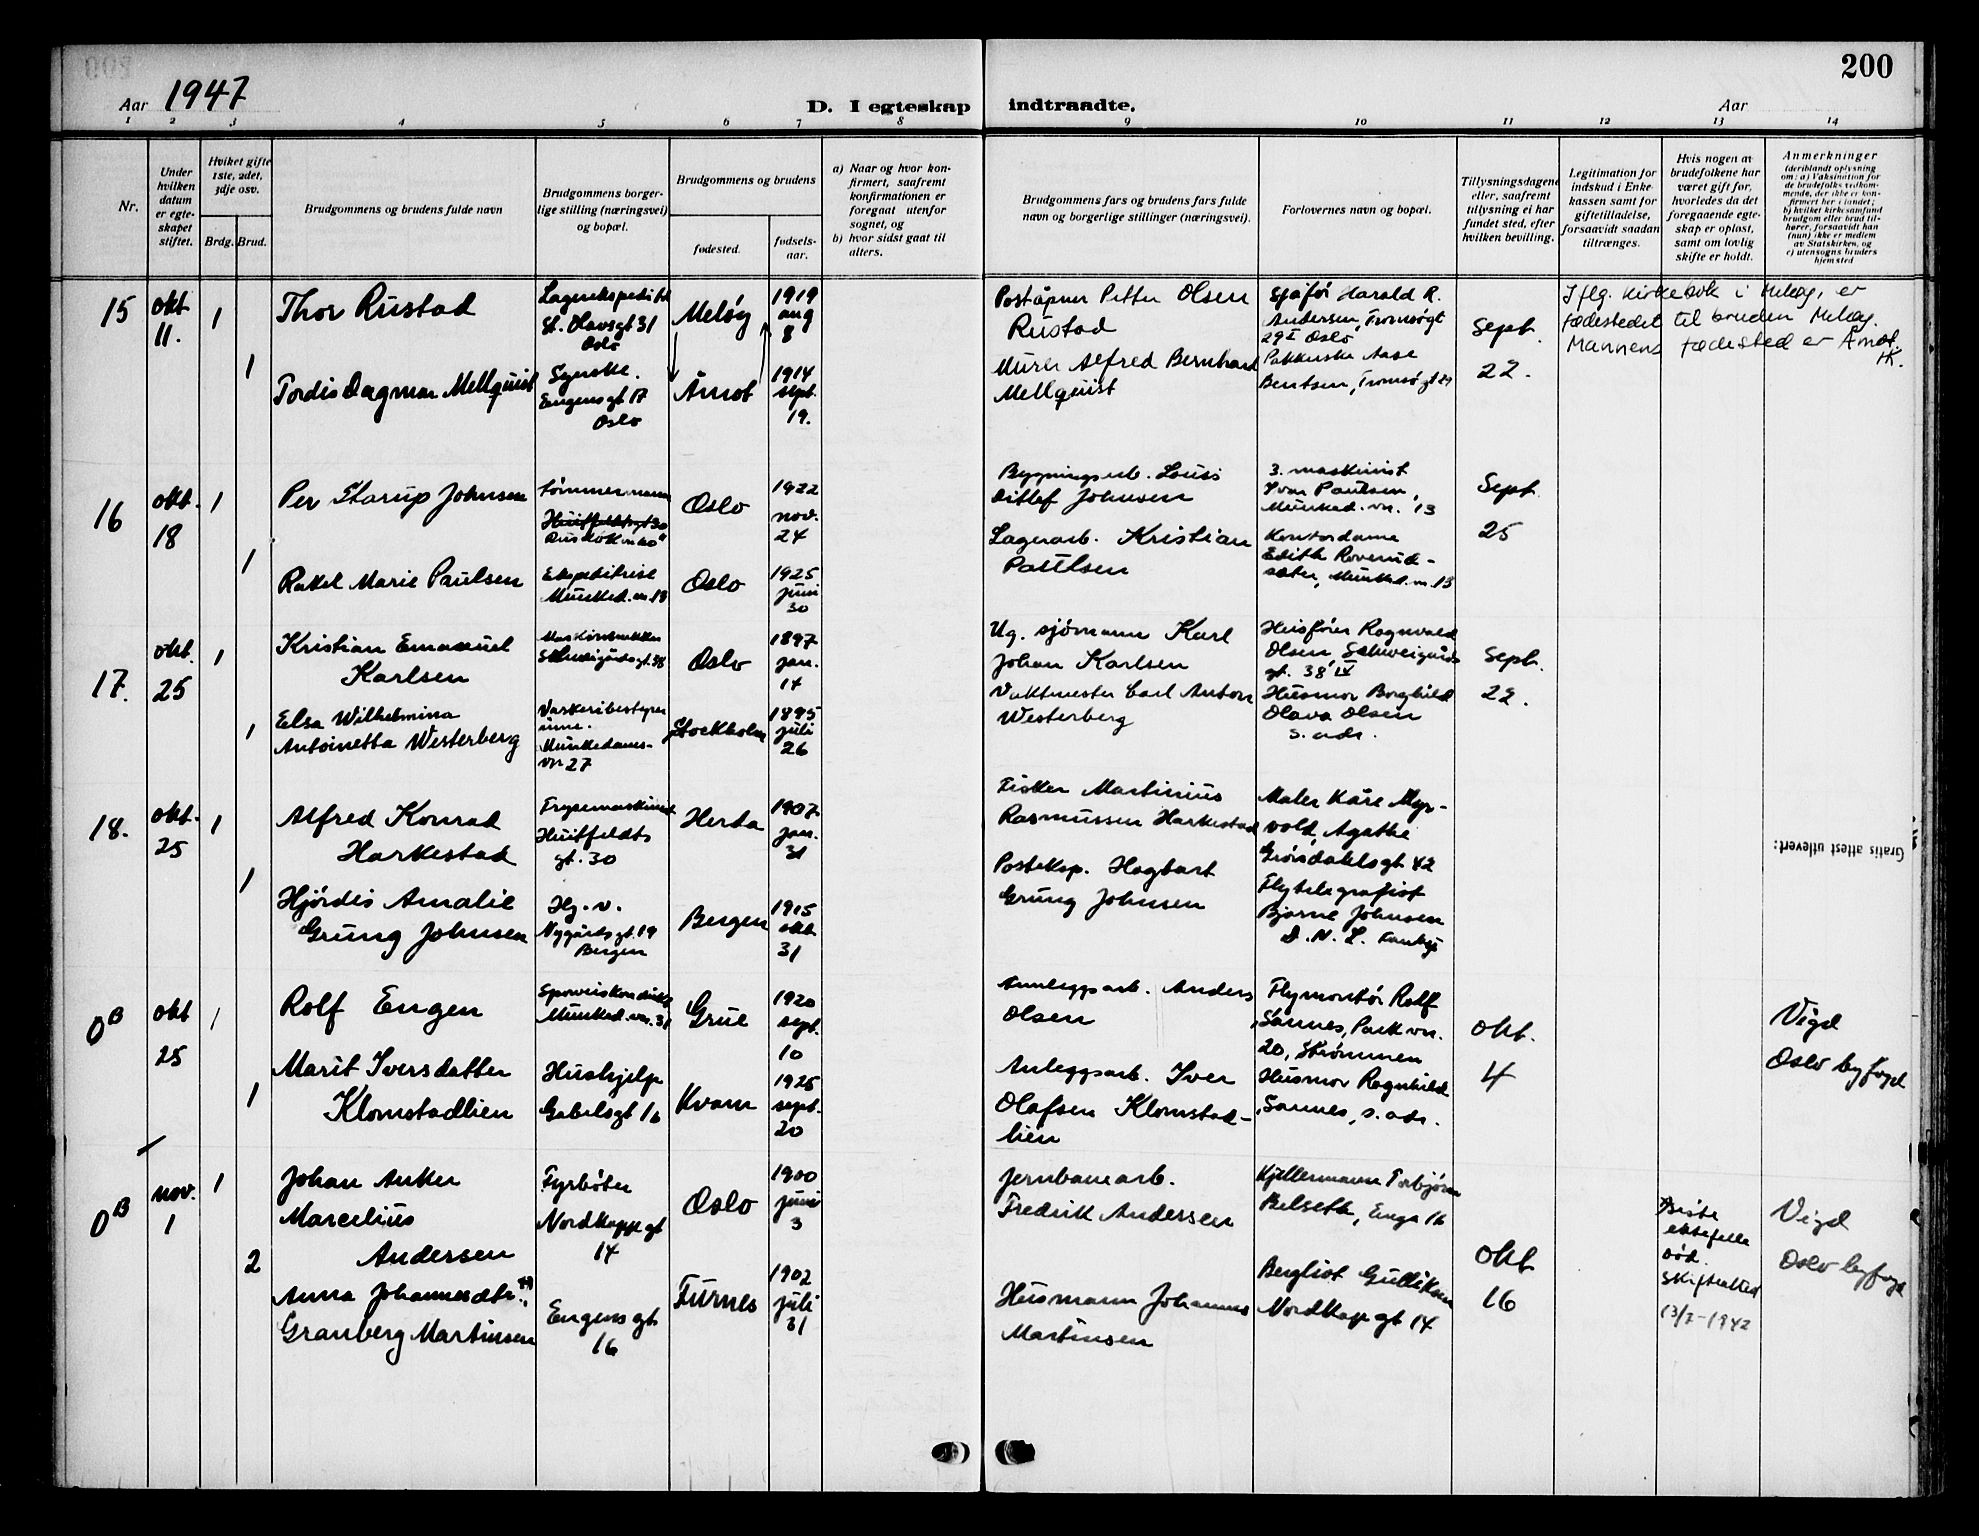 200
Aar 1947
D. I egteskap indtraadte.
Aar
1 2 3 4 5 6 7 8 9 10 11 12 13 14
Nr.
Under hvilken datum er egteskapet stiftet.
Hvilket gifte 1ste, 2det, 3dje osv.
Brdg. Brud.
Brudgommens og brudens fulde navn
Brudgommens borgerlige stilling (næringsvei) og bopæl.
Brudgommens og brudens
fødested.
fødselsaar.
a) Naar og hvor konfirmert, saafremt konfirmationen er foregaat utenfor sognet, og
b) hvor sidst gaat til alters.
Brudgommens fars og brudens fars fulde navn og borgerlige stillinger (næringsvei).
Forlovernes navn og bopæl.
Tillysningsdagene eller, saafremt tillysning ei har fundet sted, efter hvilken bevilling.
Legitimation for indskud i Enkekassen samt for giftetilladelse, forsaavidt saadan tiltrænges.
Hvis nogen av brudefolkene har været gift før, hvorledes da det foregaaende egteskap er opløst, samt om lovlig skifte er holdt.
Anmerkninger
(deriblandt oplysning om: a) Vaksination for de brudefolks vedkommende, der ikke er konfirmert her i landet; b) hvilket kirkesamfund brudgom eller brud tilhører, forsaavidt han (hun) ikke er medlem av Statskirken, og c) utensogns bruders hjemsted
15 okt 11. 1
Thor Rustad
St. Olavsgt 31
Oslo
Meløy
1919
aug
8
Poståpner Petter Olsen
Rustad
Sjåfør Harald R.
Andersen, Tromsøgt
29 I Oslo
Sept.
22.
Iflg. kirkebok i Meløy, er
fødestedet til bruden Meløy.
Mannens fødested er Åmot.
1
Tordis Dagmar Mellquist
Syerske.
Engensgt 17
Oslo
Åmot
1914
sept.
19.
Murer Alfred Bernhard
Mellquist
Aase
Bentsen, Tromsøgt 29
16 okt. 18 1
Per Starup Johnsen
Tømmermann
Oslo
1922
nov.
24
Bygningsarb. Louis
Ditlef Johnsen
3. maskinist
Ivar Paulsen,
Munked.vn. 13
Sept
25
1
Rakel Marie Paulsen
Ekspeditrise
Munked.vn. 13
Oslo
1925
juni
30
Lagerarb. Kristian
Paulsen
Kontordame
Edith Roverud-
sæter, Munked.vn. 13
17. okt. 25 1
Kristian Emanuel
Karlsen
Schweigårdsgt. 38
Oslo
1897
jan.
14
Ug. sjømann Karl
Johan Karlsen
Heisfører Ragnvald
Olsen Schweigårds
gt. 38 IV
Sept.
22.
1
Elsa Wilhelmina
Antoinetta Westerberg
Vaskeribestyrer
inne.
Munkedams-
vn 27
Stockholm
1895
juli
26
Vaktmester Carl Anton
Westerberg
Husmor Borghild
Olava Olsen
s. adr.
18. okt. 25 1
Alfred Konrad
Harkestad
Frysemaskinist
Huitfeldts
gt. 30
Herdla
1907
jan.
31
Fisker Martinius
Rasmussen Harkestad
Maler Kåre Myr-
vold, Agathe
Grøndahlsgt 42
Gratis attest utlevert:
1
Hjørdis Amalie
Grung Johnsen
Hj. v.
Nygårdsgt. 19
Bergen
Bergen
1915
okt.
31
Posteksp. Hagbart
Grung Johnsen
Flytelegrafist
Bjarne Johnsen
D. N. L.
0B okt 25 1
Rolf Engen
Sporveiskonduktør
Munked.vn. 31
Grue
1920
sept.
10
Anleggsarb. Anders
Olsen
Flymontør Rolf
Sannes, Parkvn.
20, Strømmen
okt.
4
Vigd
Oslo byfogd
1
Marit Iversdatter
Klomstadlien
Hushjelp
Gabelsgt 16
Kvam
1925
sept.
20
Anleggsarb. Iver
Olafsen Klomstad-
lien
Husmor Ragnhild
Sannes, s. adr.
0B nov. 1 1
Johan Anker
Marcelius
Andersen
Fyrbøter
Nordkappgt
14
Oslo
1900
juni
3
Jernbanearb.
Fredrik Andersen
Kjellermann Torbjørn
Belseth, Engg 16
okt
16
død.
13/7-1942
Vigd
Oslo byfogd
2
Anna Johannesdtr.
Granberg Martinsen
Engensgt
16
Furnes
1902
juli
31
Husmann Johannes
Martinsen
Bergliot Gulliksen
Nordkapgt 14